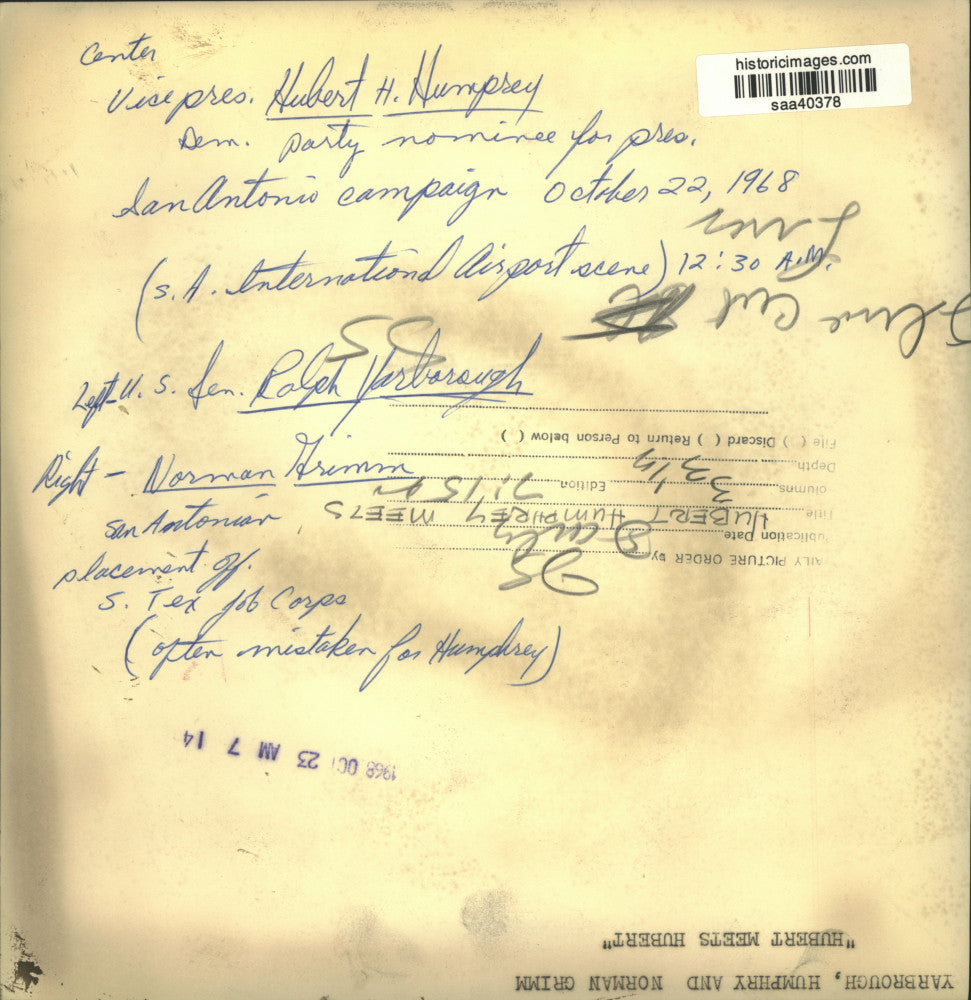 historicimages.com
saa40378
Center
Vice pres. Hubert H. Humprey
Dem. party nominee for pres.
San Antonio campaign October 22, 1968
(S.A. International Airport scene) 12:30 A.M.
Left-U.S. Sen. Ralph Yarborough
Right - Norman Grimm
San Antonian
placement off.
S. Tex Job Corps
(often mistaken for Humphrey)
1968 OCT 23 AM 7 14
AILY PICTURE ORDER by
ublication Date
Title HUBERT HUMPHREY MEETS
olumns 3 Edition 7:15
Depth
File ( ) Discard ( ) Return to Person below ( )
YARBROUGH, HUMPHRY AND NORMAN GRIMM
"HUBERT MEETS HUBERT"